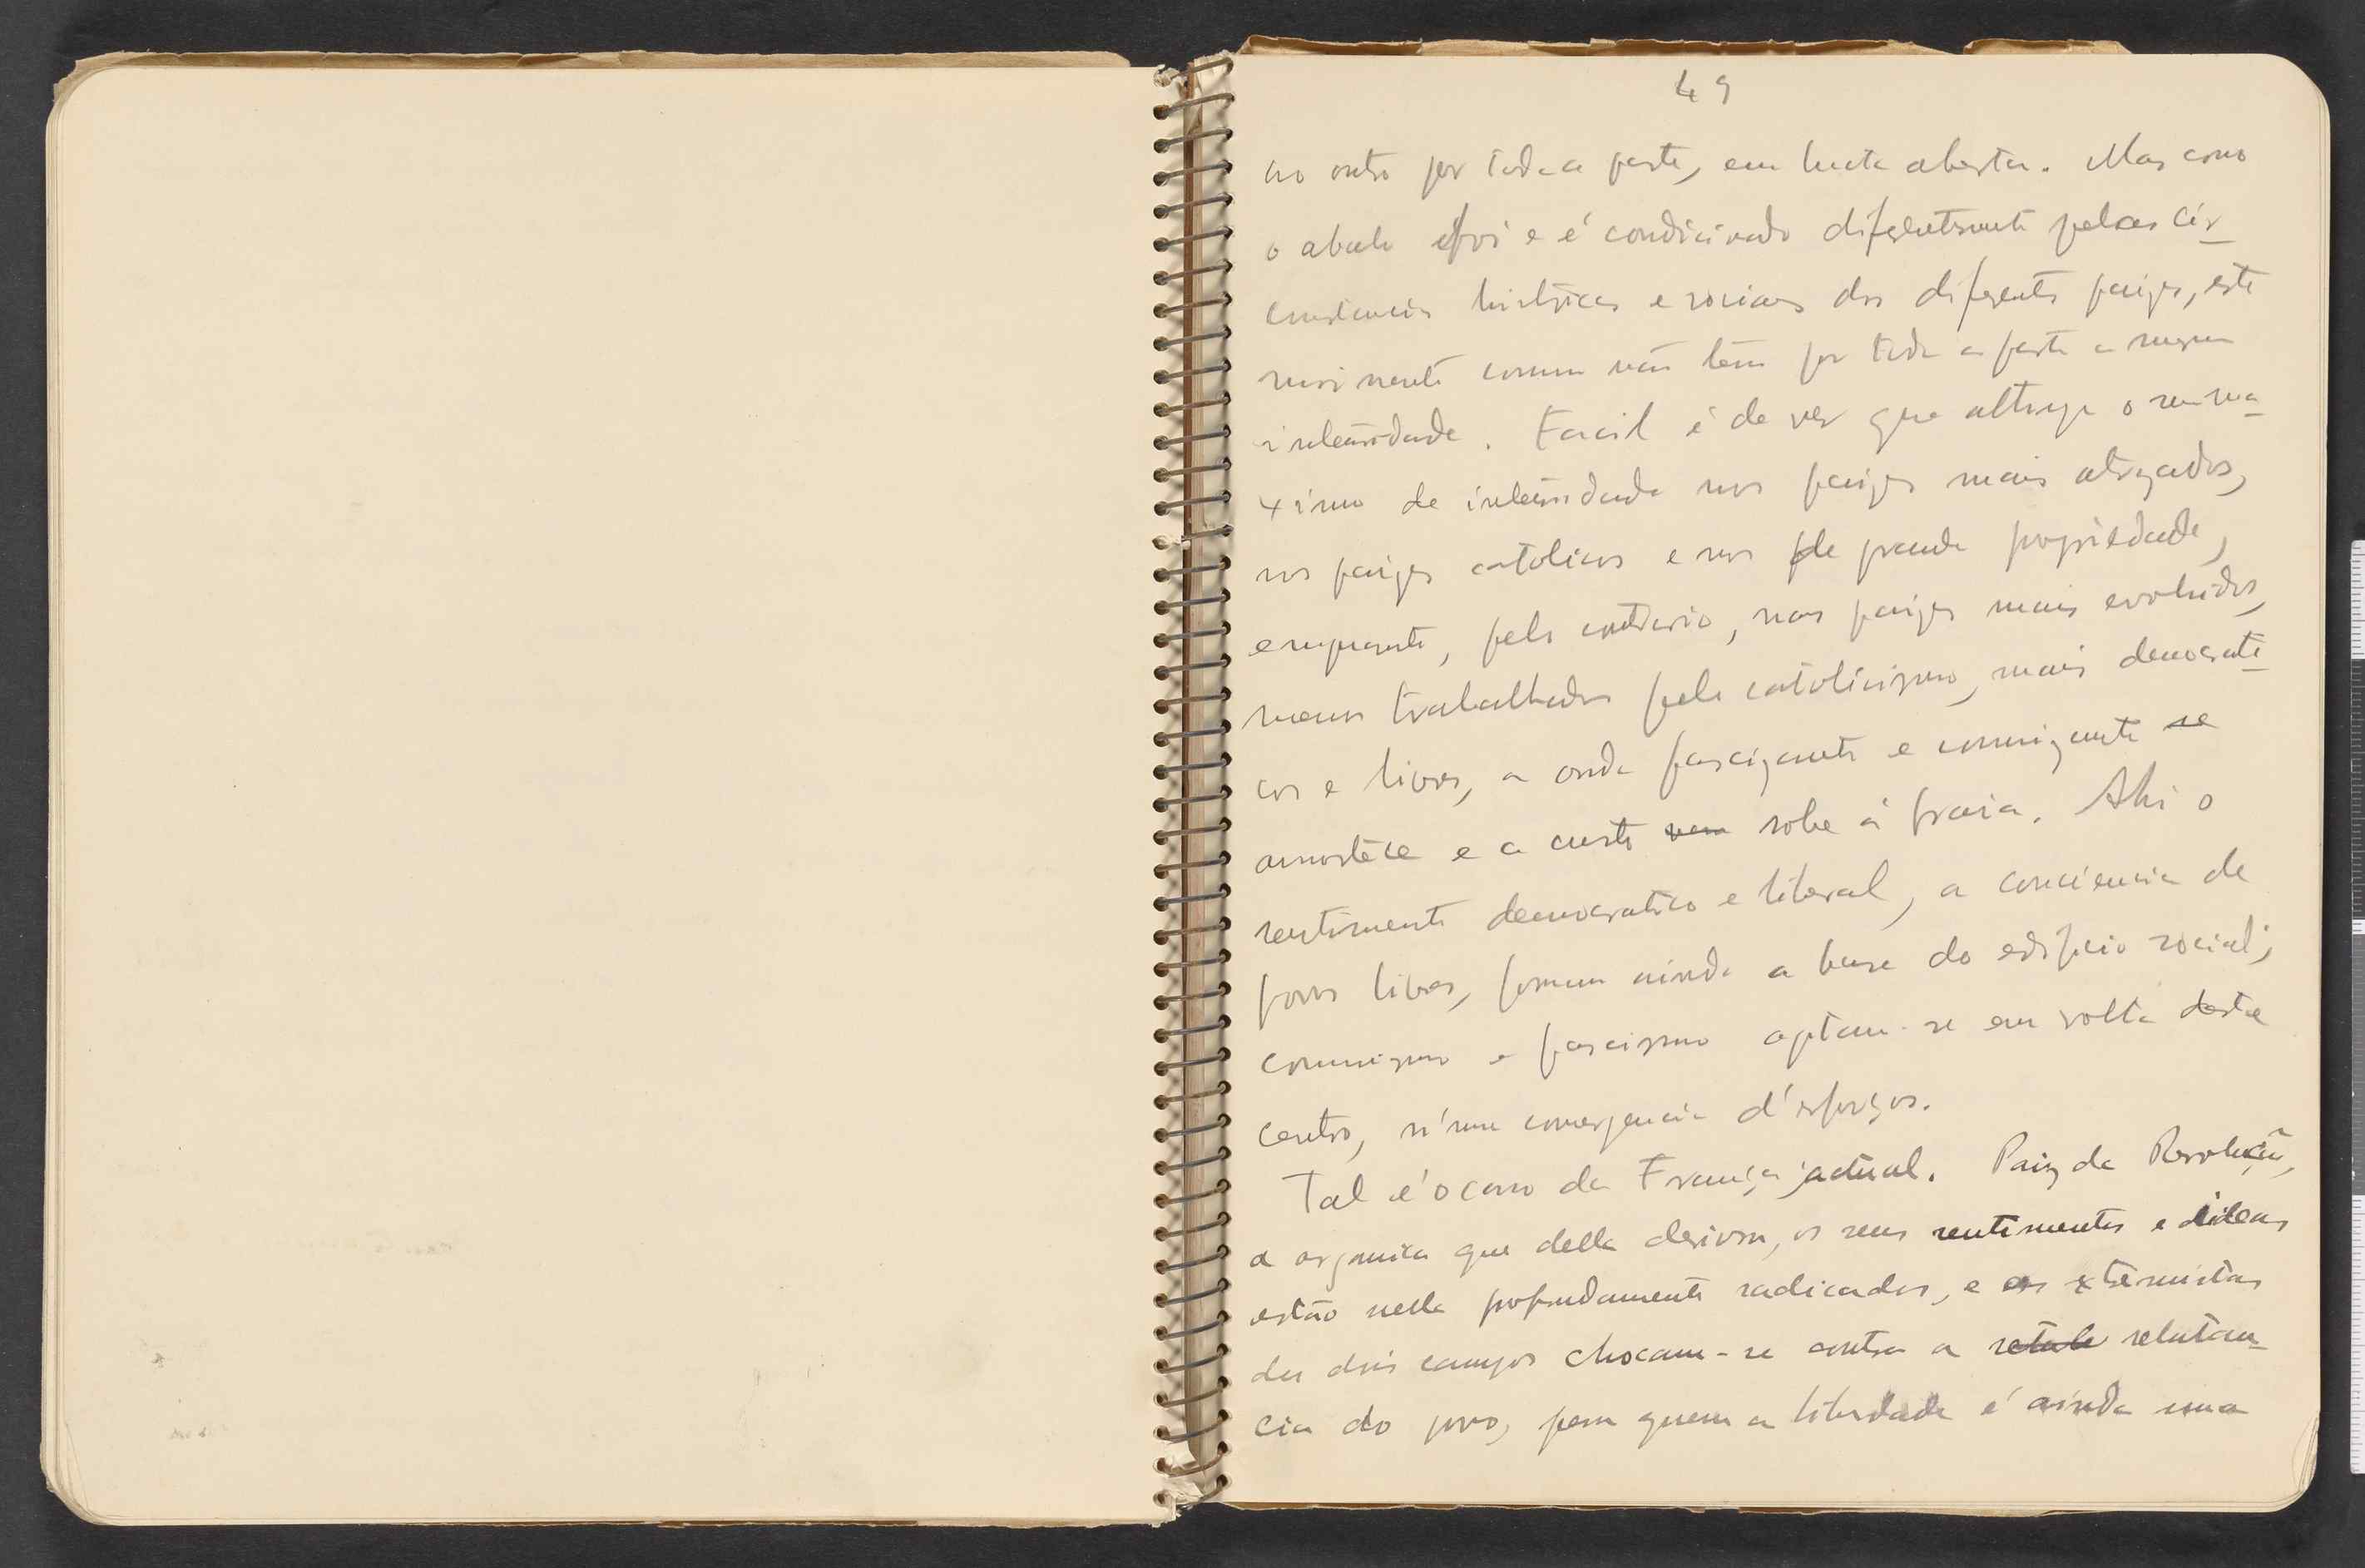 49
ao outro por toda a parte, em lucta aberta. Mas como
o abalo foi e é condicionado diferentemente pelas cir-
cunstancias históricas e sociaes dos diferentes paizes, este
movimento comum não tem por toda a parte a mesma
intensidade. Facil é de ver que attinge o seu ma-
ximo de intensidade nos paizes mais atrazados,
nos paizes catolicos e nos de grande propriedade,
emquanto, pelo contrario, nos paizes mais evoluidos,
menos trabalhados pelo catolicismo, mais democrati-
cos e livres, a onda fascizante e comunizante se
amortéce e a custo vem sobe á praia. Ahi o
sentimento democratico e liberal, a conciencia de
povos livres, formam ainda a base do edificio social;
comunismo e fascismo agitam-se em volta deste
centro, n'uma convergencia d'esforços.
Tal é o caso da França actual. Paiz da Revolução,
a organica que della derivou, os seus sentimentos e ideas
estão nella profundamente radicados, e os extremistas
dos dois campos chocam-se contra a relutan-
cia do povo, para quem a liberdade é ainda uma